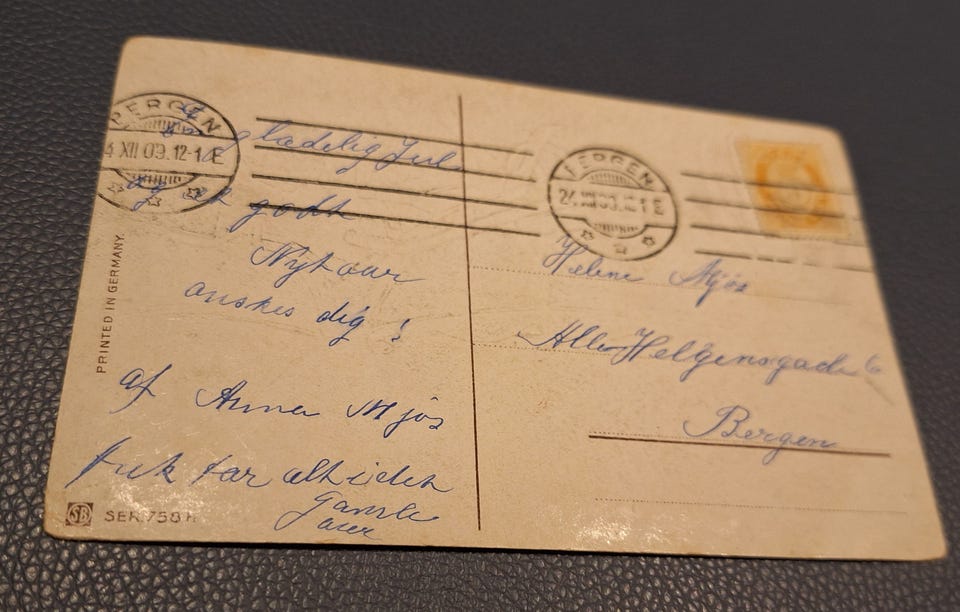 BERGEN
4 XII 09.12-1 E
en glædelig Jul
og et godt
Nyt aar
ønskes dig !
af Anna Mjøs
tak for alt i det
Gamle
aar
PRINTED IN GERMANY.
SB SER. 758
BERGEN
24 XII 09.12-1 E
Helene Mjøs
Alle Helgensgade 6
Bergen